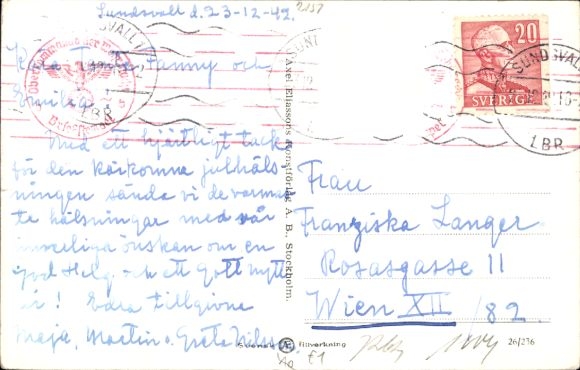 Sundsvall d. 23-12-42.
2157
Kära Tant Fanny och
Emilia
Med ett hjärtligt tack
för den kärkomna julhäls
ningen sända vi de varmas
te hälsningar med vår
innerliga önskan om en
god Helg och ett Gott nytt
år! Edra tillgivne
Maja, Martin o. Greta Nilsson
Oberkommando der Wehrmacht
SUNDSVALL 1
LBR
20
SVERIGE
SUNDSVALL 1
LBR
Axel Eliassons Konstförlag A. B., Stockholm.
Frau
Franziska Langer
Rosasgasse 11
Wien XII /82.
Svensk tillverkning
26/236
£1